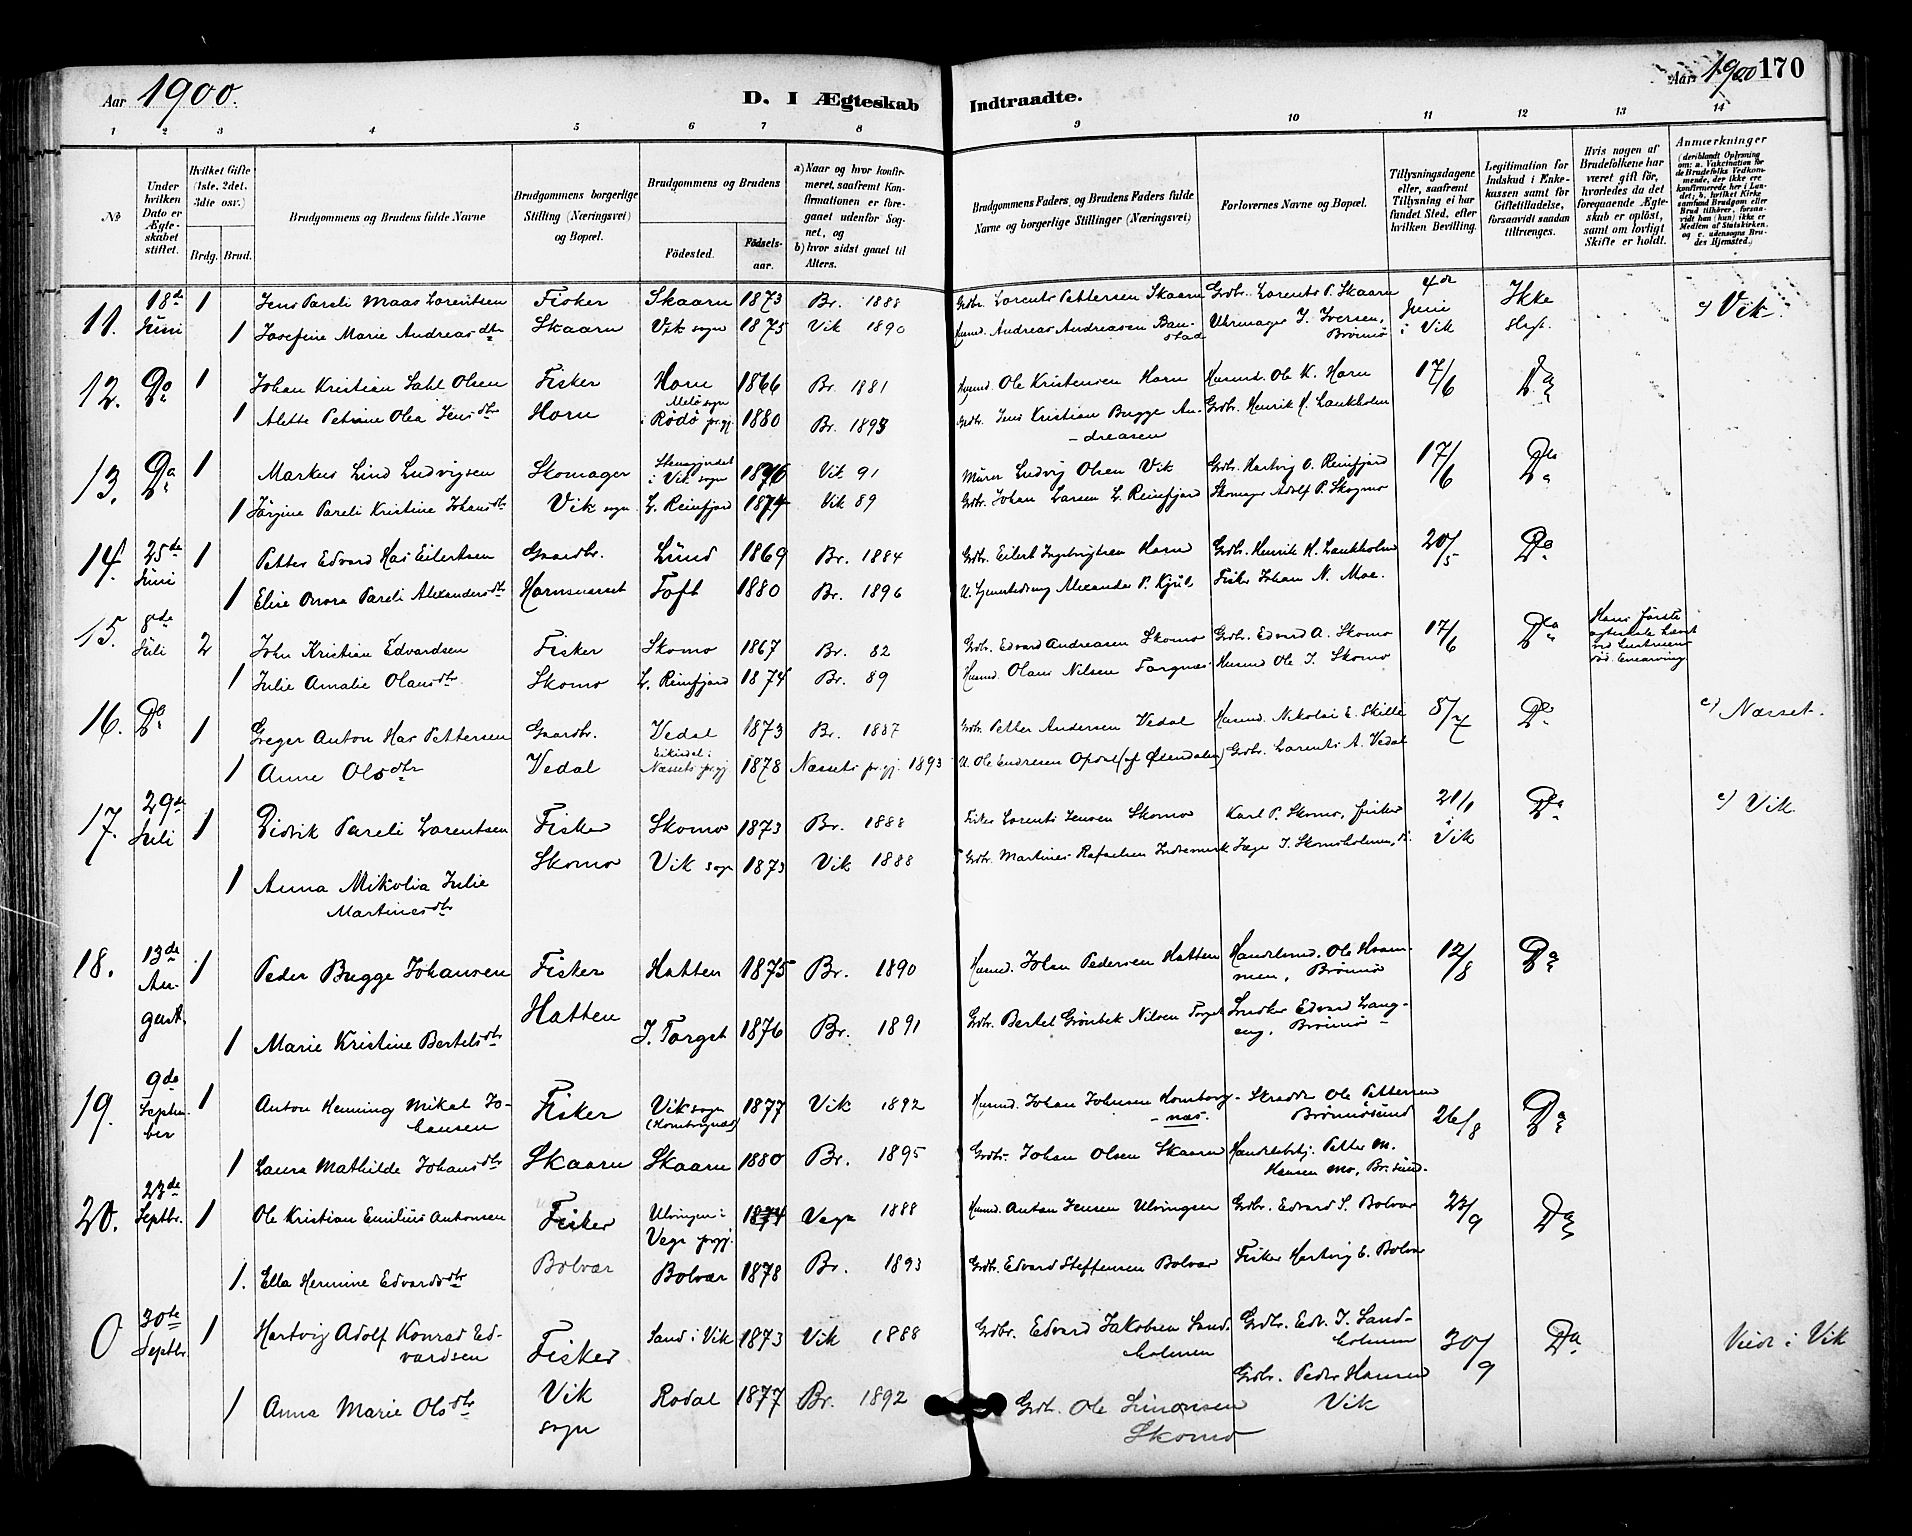 Aar 1900.
D. I Ægteskab Indtraadte.
Aar 1900 170
1 2 3 4 5 6 7 8 9 10 11 12 13 14
No
Under hvilken Dato er Ægteskabet stiftet.
Hvilket Gifte (1ste, 2det, 3die osv.)
Brdg. Brud.
Brudgommens og Brudens fulde Navne
Brudgommens borgerlige Stilling (Næringsvei) og Bopæl.
Brudgommens og Brudens
Födested. Födselsaar.
a) Naar og hvor konfirmeret, saafremt Konfirmationen er foregaaet udenfor Sognet, og
b) hvor sidst gaaet til Alters.
Brudgommens Faders og Brudens Faders fulde Navne og borgerlige Stillinger (Næringsvei)
Forlovernes Navne og Bopæl.
Tillysningsdagene eller, saafremt Tillysning ei har fundet Sted, efter hvilken Bevilling.
Legitimation for Indskud i Enkekassen samt for Giftetilladelse, forsaavidt saadan tiltrænges.
Hvis nogen af Brudefolkene har været gift før, hvorledes da det foregaaende Ægteskab er opløst, samt om lovligt Skifte er holdt.
Anmærkninger (deriblandt Oplysning om: a. Vakcination for de Brudefolks Vedkommende, der ikke ere konfirmerede her i Landet; b. hvilket Kirkesamfund Brudgom eller Brud tilhører, forsaavidt han (hun) ikke er Medlem af Statskirken, og c. udensogns Brudes Hjemsted.)
11. 18de Juni 1 Jens Pareli Maas Lorentsen Fisker Skaarn 1873 Br. 1888 Grdbr. Lorents Pettersen Skaarn Grdbr. Lorents P. Skaarn 4de Juni i Vik Ikke c) Vik.
1 Josefine Marie Andreasdtr Skaarn Vik sogn 1875 Vik 1890 Husmd. Andreas Andreasen Baustad Uhrmager J. Iversen, Brønnø
12. Do 1 Johan Kristian Dahl Olsen Fisker Horn 1866 Br. 1881 Husmd. Ole Kristensen Horn Husmd. Ole K. Horn 17/6 Do
1 Alette Petrine Olea Jensdtr Horn Melø sogn i Rödö prgj. 1880 Br. 1895 Grdbr. Jens Kristian Bugge Andreasen Grdbr. Henrik H. Laukholm
13. Do 1 Markus Lind Ludvigsen Skomager i Vik sogn 1876 Vik 91 Murer Ludvig Olsen Vik Grdbr. Hartvig O. Reinfjord 17/6 Do
1 Jørgine Pareli Kristine Johansdtr Vik sogn L. Reinfjord 1874 Vik 89 Grdbr. Johan Larsen L. Reinfjord Skomager Adolf P. Skogmo
14. 25de Juni 1 Petter Edvard Has Eilertsen Gaardbr. Lund 1869 Br. 1884 Grdbr. Eilert Ingebrigtsen Horn Grdbr. Henrik H. Laukholm 20/5 Do
1 Elise Onora Pareli Alexandersdtr Hornsneset Toft 1880 Br. 1896 Alexander P. Fisker Johan N. Moe.
15. 8de Juli 2 John Kristian Edvardsen Fisker Skomo 1867 Br. 82 Grdbr. Edvard Andreasen Skomo Grdbr. Edvard A. Skomo 17/6 Do Hans første ægteskab hævet ved hustruens død. Enearving
1 Julie Amalie Olausdtr. Skomo L. Reinfjord 1874 Br. 89 Husmd. Olaus Nilsen Torgnes. Husmd Ole J. Skomo
16. Do 1 Greger Anton Has Pettersen Gaardbr. Vedal 1873 Br. 1887 Grdbr. Petter Andersen Vedal Husmd. Nikolai E. Skille 8/7 Do c) Næsset.
1 Anne Olsdtr Vedal Eikisdal i Næssets prgj. 1878 Næssets prgj. 1893 U. Ole Endresen (af Øxendalen) Grdbr. Lorents A. Vedal
17. 29de Juli 1 Didrik Pareli Lorentsen Fisker Skomo 1873 Br. 1888 Fisker Lorents Jensen Skomo Karl P. Skomo, fisker 21/1 i Vik Do c) Vik.
1 Anna Mikolia Julie Martinesdtr Skomo Vik sogn 1873 Vik 1888 Grdbr. Martines Rafaelsen Indremark J. Skomsholmen, do.
18. 13de August 1 Peder Bugge Johansen Fisker Hatten 1875 Br. 1890 Husmd. Johan Pedersen Hatten Handlsmd. Ole Hvammen, Brønnø 12/8 Do
1 Marie Kristine Bertelsdtr Hatten J. Torget 1876 Br. 1891 Grdbr. Bertel Grønbek Nilsen Torget Snedker Edvard Langeng, Brønnø
19. 9de September 1 Anton Henning Mikal Johansen Fisker Vik sogn (Hombornæs) 1877 Vik 1892 Husmd. Johan Johnsen Hombornæs. Skrædder Ole Pettersen Brønnøsund 26/8 Do
1 Laura Mathilde Johansdtr Skaarn Skaarn 1880 Br. 1895 Grdbr. Johan Olsen Skaarn Handelsbtj. Petter M. Hansen Mo, Br.sund.
20. 23de Septbr. 1 Ole Kristian Emilius Antonsen Fisker Ulvingen i Vega prgj. 1874 Vega 1888 Husmd. Anton Jensen Ulvingen Grdbr. Edvard S. Bolvær 23/9 Do
1. Ella Hermine Edvardsdtr Bolvær Bolvær 1878 Br. 1893 Grdbr. Edvard Steffensen Bolvær Fisker Hartvig E. Bolvær
0 30te Septbr. 1 Hartvig Adolf Konrad Edvardsen Fisker Sand i Vik 1873 Vik 1888 Grdbr. Edvard Jakobsen Sandholmen Grdbr. Edv. J. Sandholmen 30/9 Do Viede i Vik
1 Anna Marie Olsdtr Vik sogn Rodal 1877 Br. 1892 Grdbr. Ole Simonsen Skomo Grdbr. Peder Hansen Vik